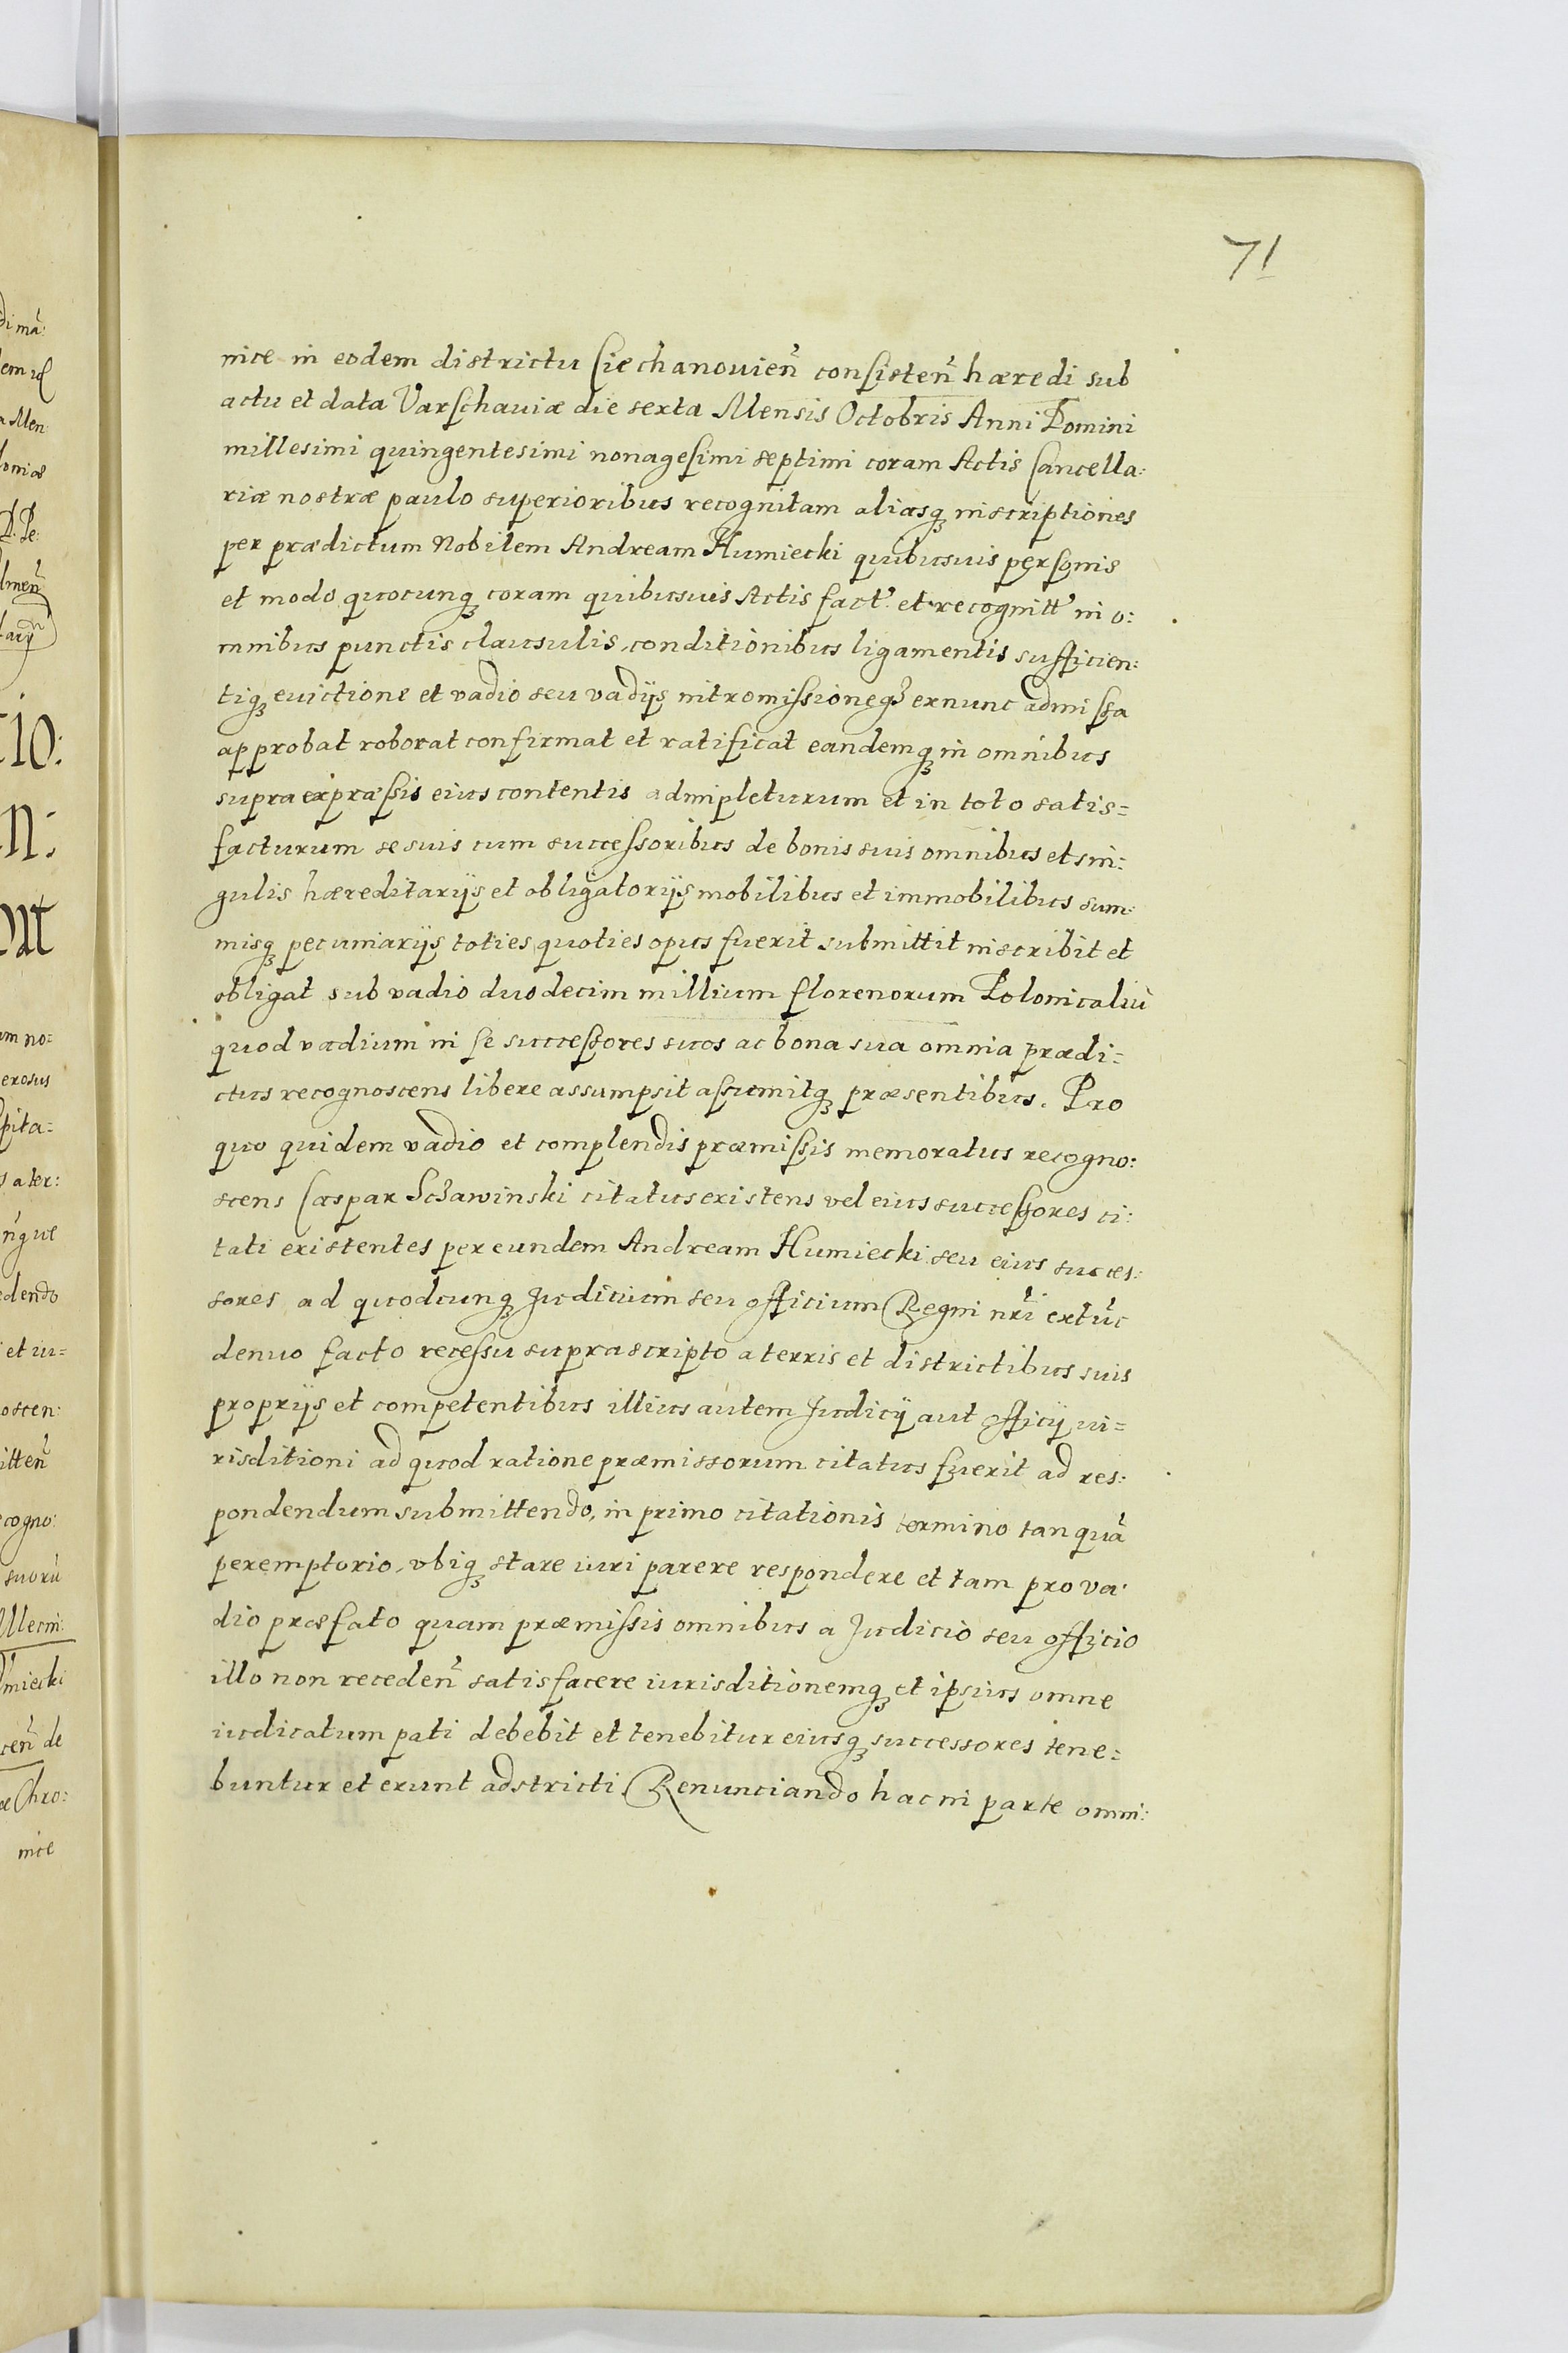 71
nice in eodem districtu Ciechanouien̄ consisten̄ hæredi sub
actu et data Varschauiæ die sexta Mensis Octobris Anni Domini
millesimi quingentesimi nonagesimi septimi coram Actis Cancella:
riæ nostræ paulo superioribus recognitam aliasq̨ inscriptiones
per prædictum Nobilem Andream Humiecki quibusuis personis
et modo quocunq̨ coram quibusuis Actis fact̄ et recognitt̄ in o:
mnibus punctis clausulis, conditionibus ligamentis sufficien:
tiq̨ euictione et vadio seu vadijs intromissioneq̨ exnunc admissa
approbat roborat confirmat et ratificat eandemq̨ in omnibus
supra expræssis eius contentis adimpleturum et in toto satis=
facturum se suis cum successoribus de bonis suis omnibus et sin:
gulis hæreditarijs et obligatorijs mobilibus et immobilibus sum:
misq̨ pecuniarijs toties quoties opus fuerit submittit inscribit et
obligat sub vadio duodecim millium florenorum Polonicaliū
quod vadium in se successores suos ac bona sua omnia prædi=
ctus recognoscens libere assumpsit assumitq̨ præsentibus. Pro
quo quidem vadio et complendis præmissis memoratus recogno:
scens Caspar Schawinski citatus existens vel eius successores ci:
tati existentes per eundem Andream Humiecki seu eius succes:
sores ad quodcunq̨ Judicium seu officium Regni nr̄i extūc
denuo facto recessu suprascripto a terris et districtibus suis
proprijs et competentibus illius autem Judicij aut officij iu=
risditioni ad quod ratione præmissorum citatus fuerit ad res:
pondendum submittendo, in primo citationis termino tanquā
peremptorio, vbiq̨ stare iuri parere respondere et tam pro va:
dio præfato quam præmissis omnibus a Judicio seu officio
illo non receden̄ satisfacere iurisditionemq̨ et ipsius omne
iudicatum pati debebit et tenebitur eiusq̨ successores tene=
buntur et erunt adstricti. Renunciando hac in parte omni: